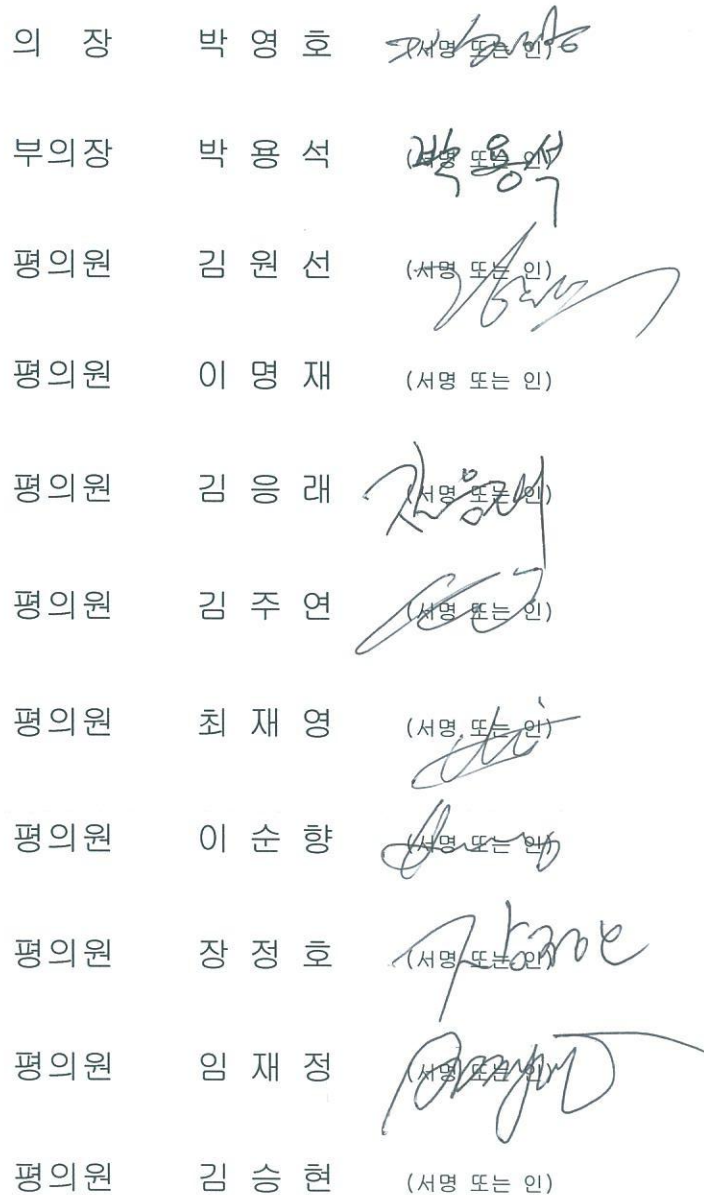 의 장 박 영 호 (서명 또는 인)
부의장 박 용 석 (서명 또는 인) 박용석
평의원 김 원 선 (서명 또는 인)
평의원 이 명 재 (서명 또는 인)
평의원 김 응 래 (서명 또는 인) 김응래
평의원 김 주 연 (서명 또는 인)
평의원 최 재 영 (서명 또는 인)
평의원 이 순 향 (서명 또는 인)
평의원 장 정 호 (서명 또는 인)
평의원 임 재 정 (서명 또는 인)
평의원 김 승 현 (서명 또는 인)